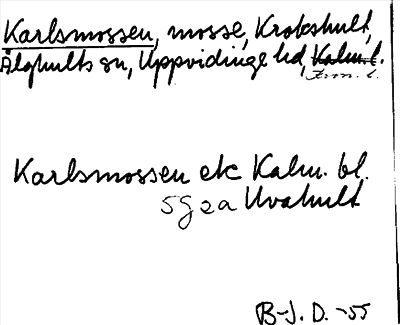 Karlsmossen, mosse, Krokshult,
Älghults sn, Uppvidinge hd, Kalm. l.
Kron. l.
Karlsmossen ek Kalm. bl.
5G2a Uvahult
B-J. D. -55